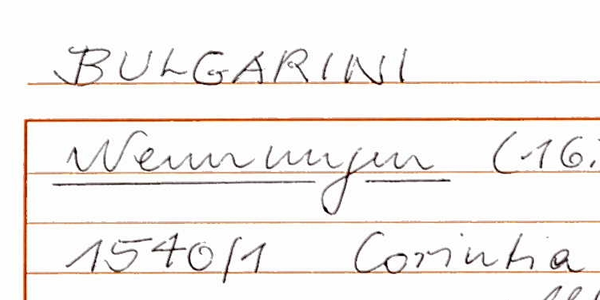 BULGARINI
Nennungen (-16.
1540/1 Corintia